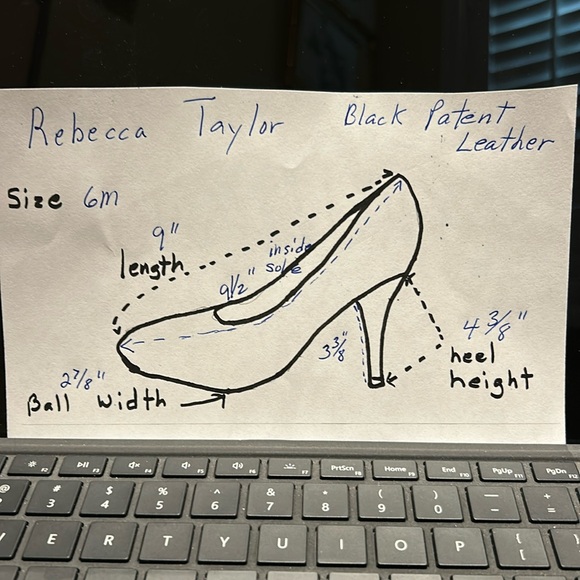 Rebecca Taylor Black Patent
Leather
Size 6m
9"
length
inside
sole
9 1/2"
3 3/8"
4 3/8"
heel
height
2 7/8"
Ball Width
PrtScn Home End PgUp PgDn
F2 F3 F4 F5 F6 F7 F8 F9 F10 F11 F12
@ # $ % ^ & * ( ) — +
3 4 5 6 7 8 9 0 - =
E R T Y U I O P { [